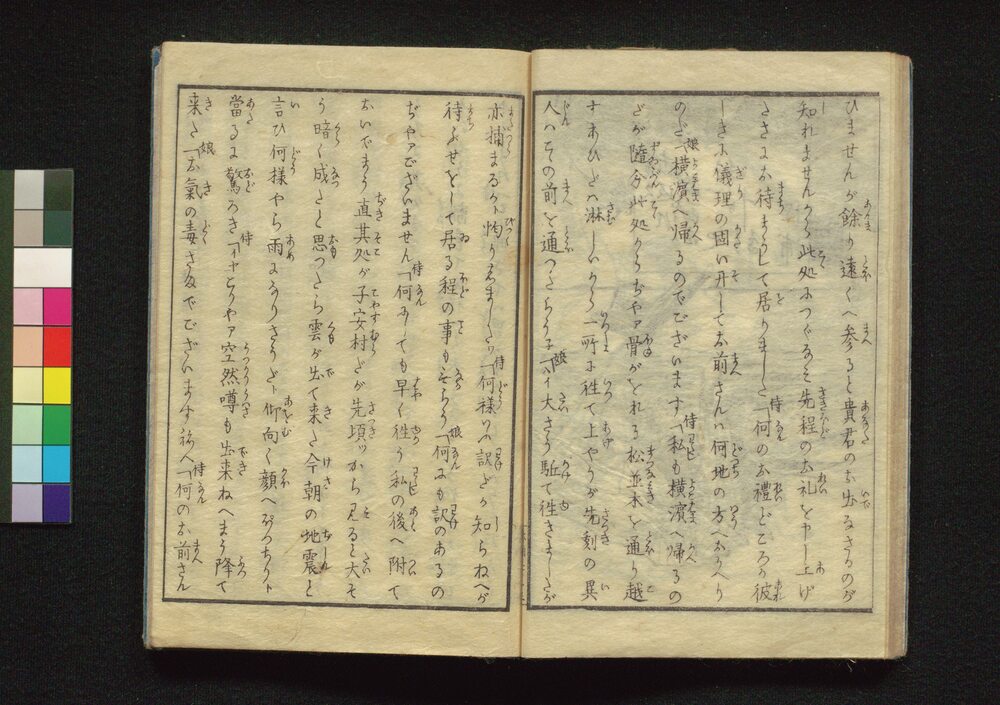 ひませんが餘り遠くへ参ると貴君のお出なさるのが
知れませんから此処につくなると先程のお礼を申し上げ
たさにお待まうして居りました「何のお禮どころか彼
しきに儀理の固い升してお前さんハ何地の方へおかへり
のだ「横濱へ帰るのでございます「私も横濱へ帰るの
だが隨分此処からぢやア骨がをれる松並木を通り越
すあひだハ淋しいから一所に徃て上やうが先刻の異
人ハこの前を通つたらうに「ハイ大さう駈て徃きましたが
亦捕まるかト怖りしましたヨ「何様いふ訳だか知らねへが
待ぶせをして居る程の事もあらう「何にも訳のあるの
ぢやアございません「何にしても早く徃う私の後へ附て
おいでまう直其処が子安村だが先頃ッから見ると大そ
う暗く成たと思つたら雲が出て来た今朝の地震と
言ひ何様やら雨になりさうだト仰向く顔へぽつちりト
當るに驚ろき「イヤこりやア空然噂も出来ねへまう降て
来た「お氣の毒さまでございますねへ「何のお前さん